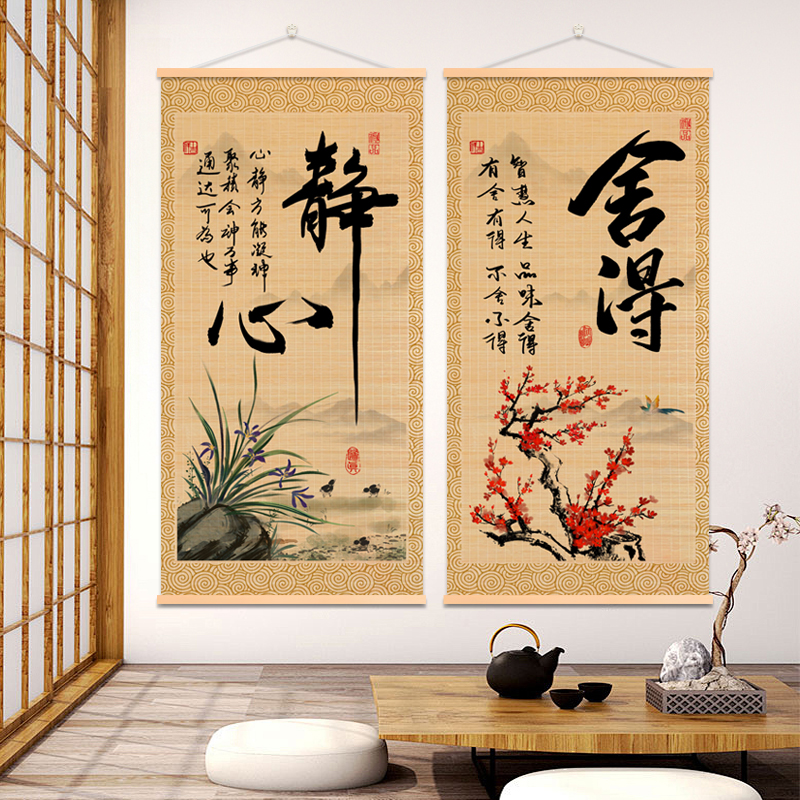 静心
心静方能凝神
聚精会神万事
通达可為也
舍得
智慧人生 品味舍得
有舍有得 不舍不得